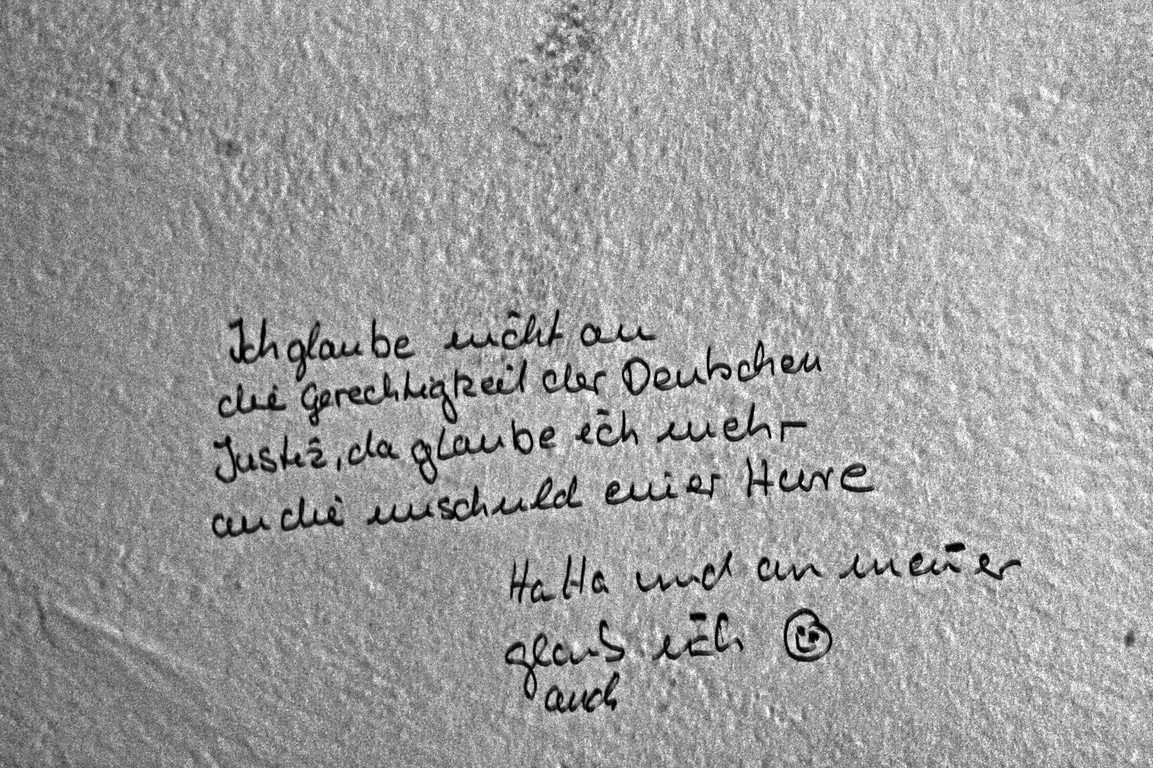 Ich glaube nicht an
die Gerechtigkeit der Deutschen
Justiz, da glaube ich mehr
an die unschuld einer Hure
HaHa und an meiner
glaub ich
auch